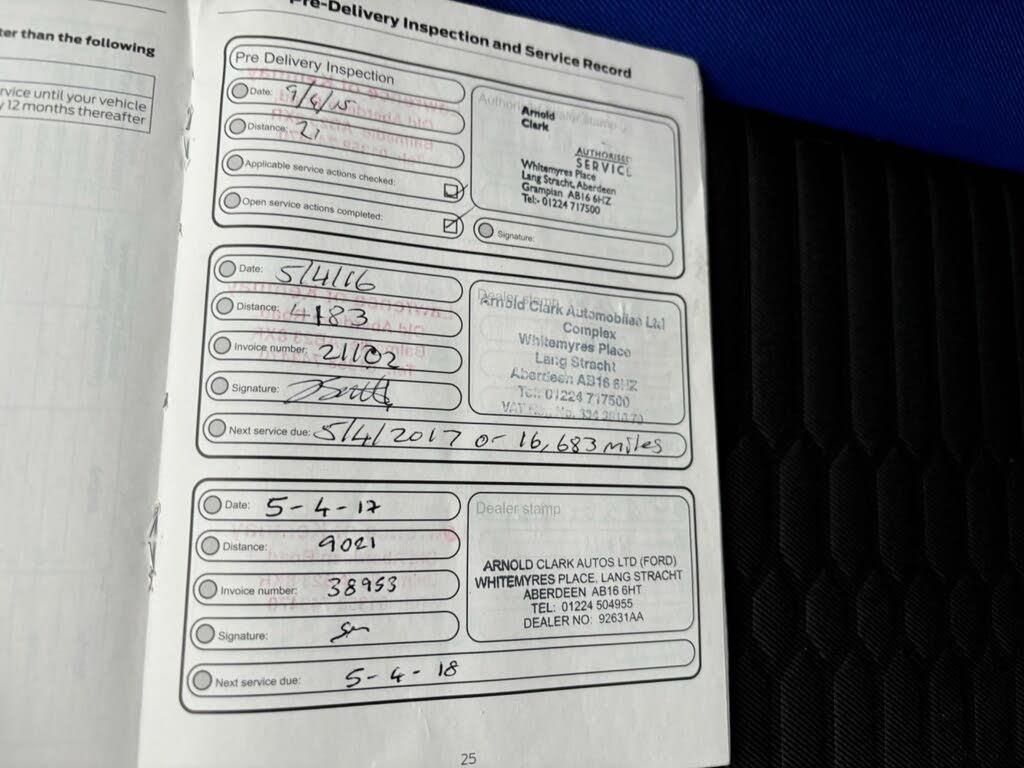 ter than the following
rvice until your vehicle
y 12 months thereafter
Pre-Delivery Inspection and Service Record
Pre Delivery Inspection
Date:
Distance:
Applicable service actions checked:
Open service actions completed:
Arnold
Clark
AUTHORISED
SERVICE
Whitemyres Place
Lang Stracht, Aberdeen
Grampian AB16 6HZ
Tel:- 01224 717500
Signature:
Date: 5/4/16
Distance: 4183
Invoice number: 21102
Signature:
Next service due: 5/4/2017 or 16,683 miles
Dealer stamp
Arnold Clark Automobiles Ltd
Complex
Whitemyres Place
Lang Stracht
Aberdeen AB16 6HZ
Tel: 01224 717500
Date: 5-4-17
Distance: 9021
Invoice number: 38953
Signature:
Next service due: 5-4-18
Dealer stamp
ARNOLD CLARK AUTOS LTD (FORD)
WHITEMYRES PLACE, LANG STRACHT
ABERDEEN AB16 6HT
TEL: 01224 504955
DEALER NO: 92631AA
25